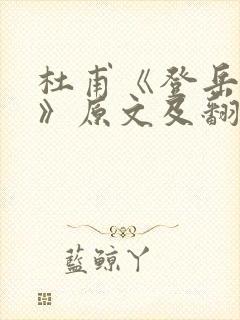 杜甫《登岳
》原文及翻
藍鯨丫